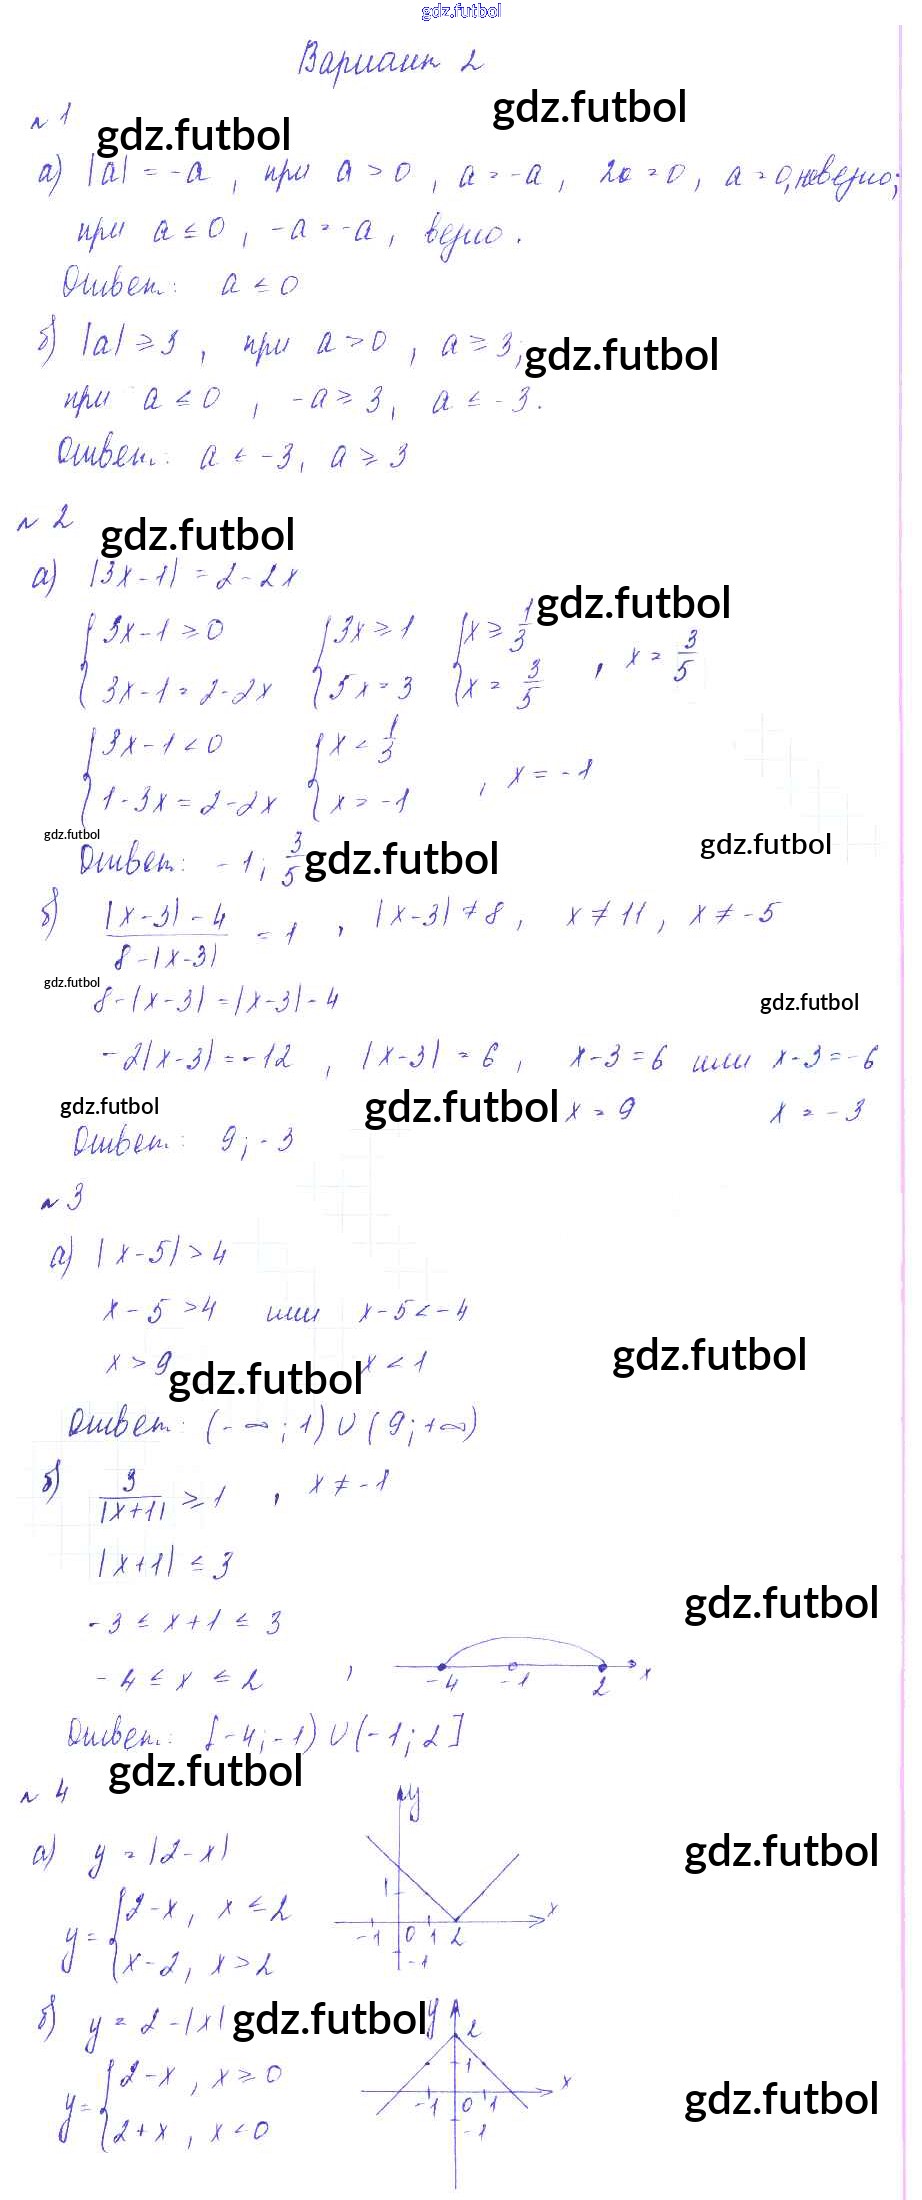 gdz.futbol
Вариант 2
gdz.futbol
№1
gdz.futbol
а) |a| = -a , при a > 0 , a = -a , 2a = 0 , a = 0, неверно;
при a ≤ 0 , -a = -a , верно .
Ответ: a ≤ 0
б) |a| ≥ 3 , при a > 0 , a ≥ 3;
gdz.futbol
при a ≤ 0 , -a ≥ 3, a ≤ -3.
Ответ: a ≤ -3, a ≥ 3
№ 2
gdz.futbol
а) |3x-1| = 2-2x
gdz.futbol
{3x-1 ≥ 0 {3x ≥ 1 {x ≥ 1/3
{3x-1 = 2-2x {5x = 3 {x = 3/5 , x = 3/5
{3x-1 < 0 {x < 1/3
{1-3x = 2-2x {x = -1 , x = -1
gdz.futbol
Ответ: -1; 3/5
gdz.futbol
gdz.futbol
б) (|x-3|-4)/(8-|x-3|) = 1 , |x-3| ≠ 8 , x ≠ 11 , x ≠ -5
gdz.futbol
8-|x-3| = |x-3|-4
gdz.futbol
-2|x-3| = -12 , |x-3| = 6 , x-3 = 6 или x-3 = -6
gdz.futbol
gdz.futbol
x = 9 x = -3
Ответ: 9; -3
№ 3
а) |x-5| > 4
x-5 > 4 или x-5 < -4
x > 9 x < 1
gdz.futbol
gdz.futbol
Ответ: (-∞; 1) ∪ (9; +∞)
б) 3/|x+1| ≥ 1 , x ≠ -1
|x+1| ≤ 3
gdz.futbol
-3 ≤ x+1 ≤ 3
-4 ≤ x ≤ 2 ,
-4 -1 2 x
Ответ: [-4; -1) ∪ (-1; 2]
gdz.futbol
№ 4
y
а) y = |2-x|
gdz.futbol
y = {2-x, x ≤ 2
{x-2, x > 2
1
-1 0 1 2 x
-1
б) y = 2-|x|
gdz.futbol
y 2
y = {2-x , x ≥ 0
{2+x , x < 0
1
-1 0 1 x
-1
gdz.futbol